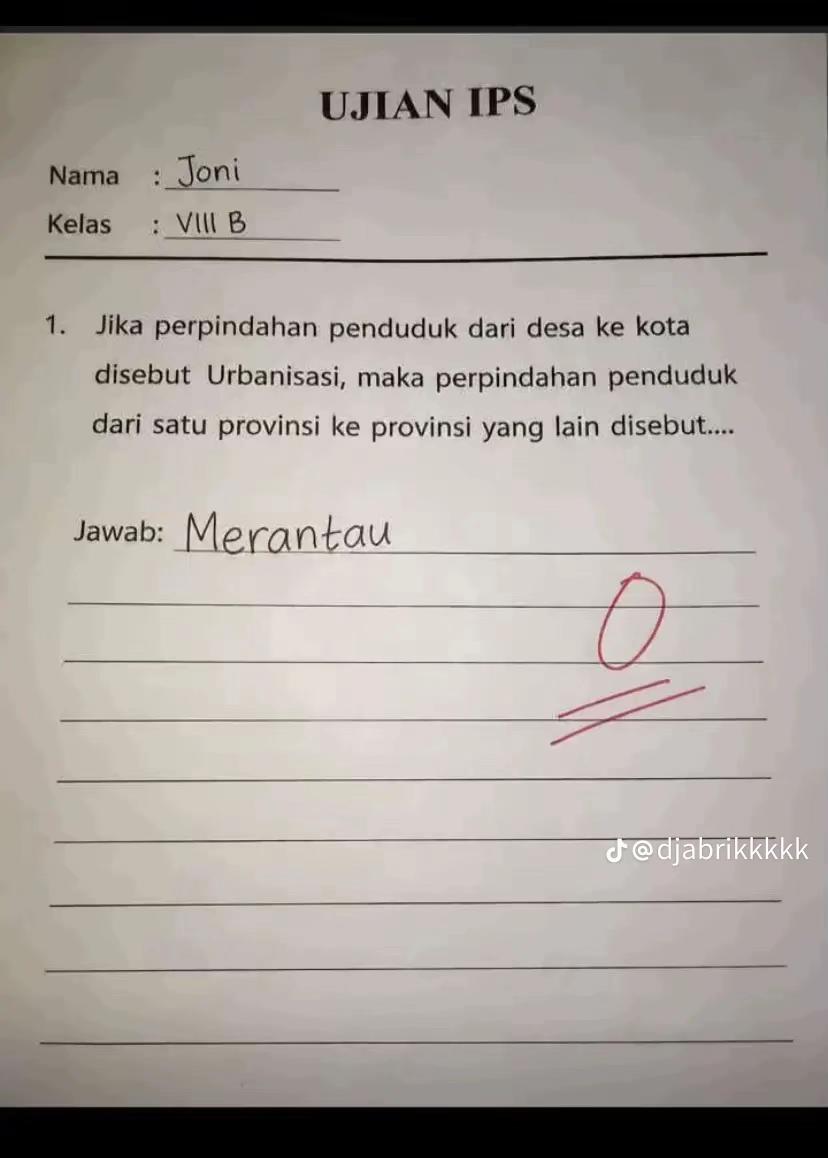 UJIAN IPS
Nama : Joni
Kelas : VIII B
1. Jika perpindahan penduduk dari desa ke kota
disebut Urbanisasi, maka perpindahan penduduk
dari satu provinsi ke provinsi yang lain disebut....
Jawab: Merantau
0
@djabrikkkkk